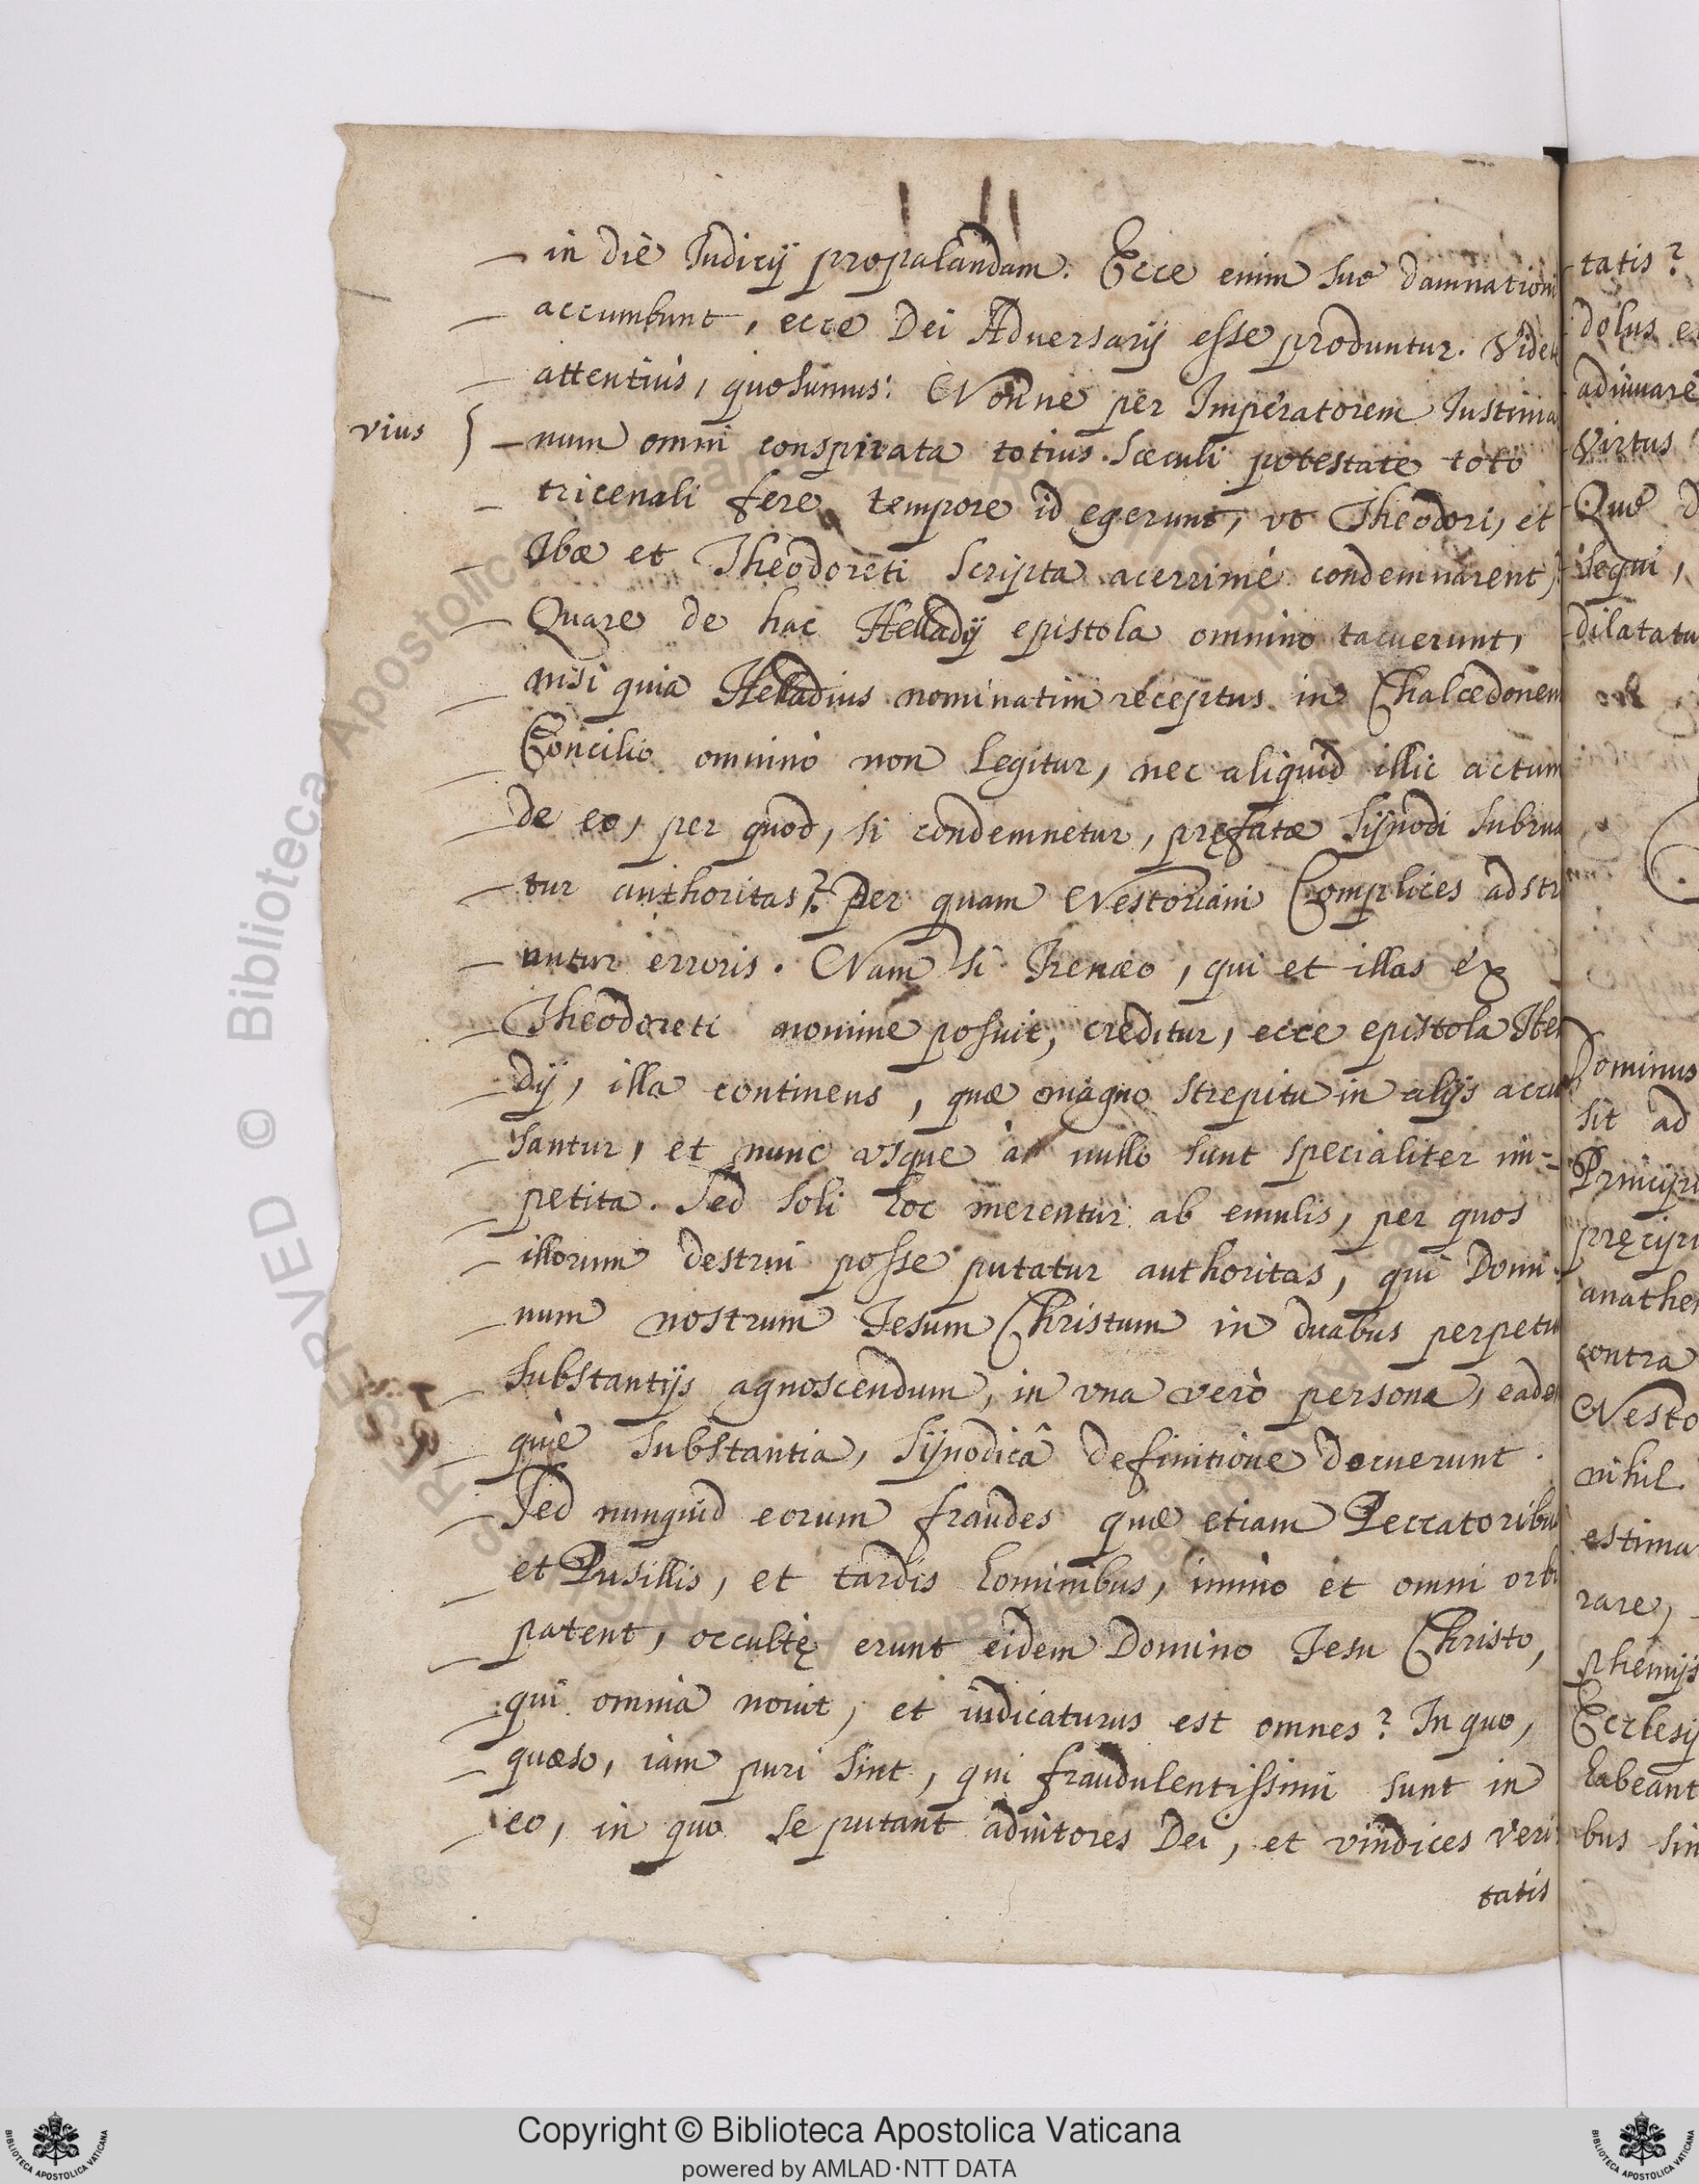 in die Iudicij propalandam. Ecce enim suę damnationi
accumbunt, ecce Dei Adversarij esse produntur. Vide
attentiùs, quęsumus: Nonne per Imperatorem Iustinia
vius } num omni conspirata totius sæculi potestate toto
tricenali fere tempore id egerunt, vt Theodori, et
Ibæ et Theodoreti scripta acerrimè condemnarent,
Quare de hac Helladij epistola omnino tacuerunt,
nisi quia Helladius nominatim receptus in Chalcedonen
Concilio omninò non legitur, nec aliquid illic actum
de eo, per quod, si condemnetur, pręfatæ Sijnodi subrua
tur authoritas? Per quam Nestoriani Complices adstr
untur erroris. Nam si Irenæo, qui et illas ex
Theodoreti nomine posuit, creditur, ecce epistola Hel
dij, illa continens, quæ magno strepitu in alijs accu
santur, et nunc vsque à nullo sunt specialiter im=
petita. Sed soli hoc merentur ab emulis, per quos
illorum destrui posse putatur authoritas, qui Domi:
num nostrum Iesum Christum in duabus perpetu
substantijs agnoscendum, in vna verò persona, eade
què substantia, Sijnodicâ definitione docuerunt.
Sed nunquid eorum fraudes quæ etiam Peccatoribu
et Pusillis, et tardis hominibus, immo et omni orbi
patent, occultę erunt eidem Domino Iesu Christo,
qui omnia nouit, et iudicaturus est omnes? In quo,
quæso, iam puri sint, qui fraudulentissimi sunt in
eo, in quo se putant adiutores Dei, et vindices veri
tatis
tatis?
dolus e
adiuuare
Virtus
Quę d
sequi,
dilatatu
Dominus
sit ad
Principi
pręcipu
anathe
contra
Nesto
nihil
estima
rare,
phemijs
Ecclesij
habeant
bus sin
© Biblioteca Apostolica Vaticana
Copyright © Biblioteca Apostolica Vaticana
powered by AMLAD·NTT DATA
BIBLIOTECA APOSTOLICA VATICANA
BIBLIOTECA APOSTOLICA VATICANA